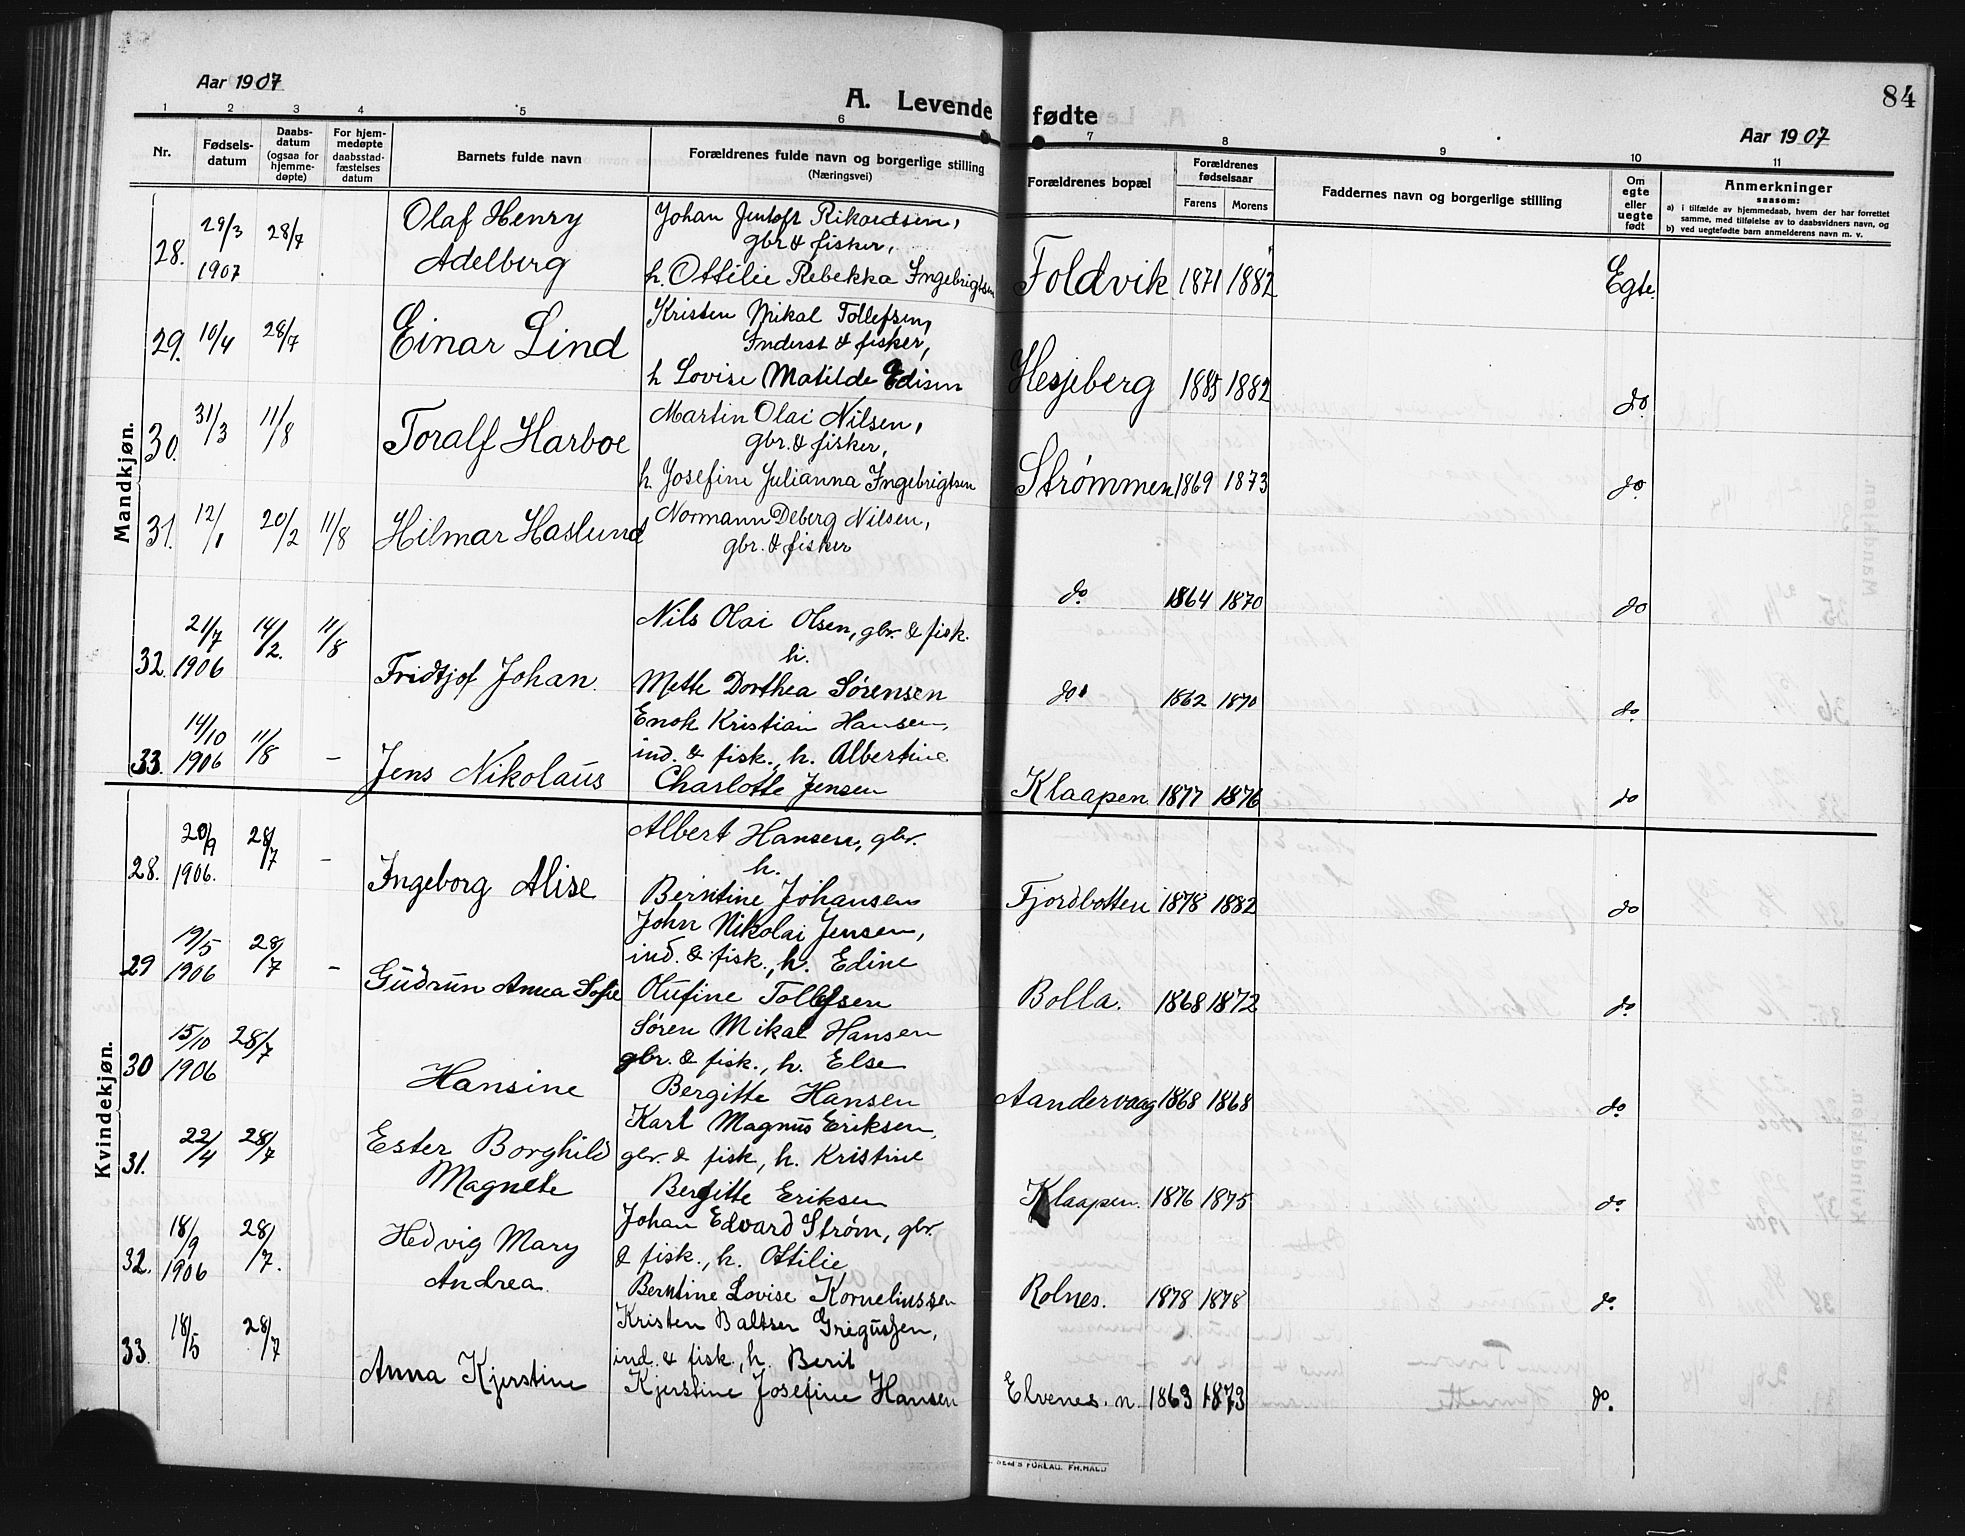 84
Aar 1907
A. Levende fødte
Aar 1907
1 2 3 4 5 6 7 8 9 10 11
Nr.
Fødsels-
datum
Daabs-
datum
(ogsaa for
hjemme-
døpte)
For hjem-
medøpte
daabsstad-
fæstelses
datum
Barnets fulde navn
Forældrenes fulde navn og borgerlige stilling
(Næringsvei)
Forældrenes bopæl
Forældrenes
fødselsaar
Farens Morens
Faddernes navn og borgerlige stilling
Om
egte
eller
uegte
født
Anmerkninger
saasom:
a) i tilfælde av hjemmedaab, hvem der har forrettet
samme, med tilføielse av to daabsvidners navn, og
b) ved uegtefødte barn anmelderens navn m. v.
Mandkjøn.
28. 29/3 1907 28/7
Olaf Henry
Adelberg
Johan Jentoft Rikardsen,
gbr & fisker,
h. Ottilie Rebekka Ingebrigtsen
Foldvik 1871 1882 Egte
29. 10/4 28/7
Einar Lind
Kristen Mikal Tollefsen,
Inderst & fisker,
h Lovise Matilde Edisen
Hesjeberg 1885 1882 do
30. 31/3 11/8
Toralf Harboe
Martin Olai Nilsen,
gbr. & fisker,
h Josefine Julianna Ingebrigtsen
Strømmen 1869 1873 do
31. 12/1 20/2 11/8
Hilmar Haslund
Normann Deberg Nilsen,
gbr. & fisker
do. 1864 1870 do
32. 21/7 1906 14/2. 11/8
Fridtjof Johan.
Nils Olai Olsen, gbr. & fisk.
h.
Mette Dorthea Sørensen
do. 1862 1870 do
33. 14/10 1906 11/8 –
Jens Nikolaus
Enok Kristian Hansen,
ind. & fisk., h. Albertine
Charlotte Jensen
Klaapen 1877 1876 do
Kvindekjøn.
28. 20/9 1906. 28/7 –
Ingeborg Alise
Albert Hansen, gbr.
h.
Berntine Johansen
Fjordbotten 1878 1882 do
29 19/5 1906 28/7 –
Gudrun Anna Sofie
John Nikolai Jensen,
ind. & fisk., h. Edine
Olufine Tollefsen
Bolla. 1868 1872 do
30 15/10 1906 28/7
Hansine
Søren Mikal Hansen
gbr. & fisk., h. Else
Bergitte Hansen
Aandervaag 1868 1868 do
31. 22/4 28/7
Ester Borghild
Magnete
Karl Magnus Eriksen,
gbr. & fisk, h. Kristine
Bergitte Eriksen
Klaapen. 1876 1875 do
32. 18/9 1906 28/7.
Hedvig Mary
Andrea.
Johan Edvard Strøm, gbr.
& fisk., h. Ottilie
Berntine Lovise Korneliussen
Rolnes. 1878 1878 do.
33. 18/5 28/7
Anna Kjerstine
Kristen Baltser Grigussen,
ind. & fisk, h. Berit
Kjerstine Josefine Hansen
Elvenes. n. 1863 1873 do.
FORLAG. FR.HALD